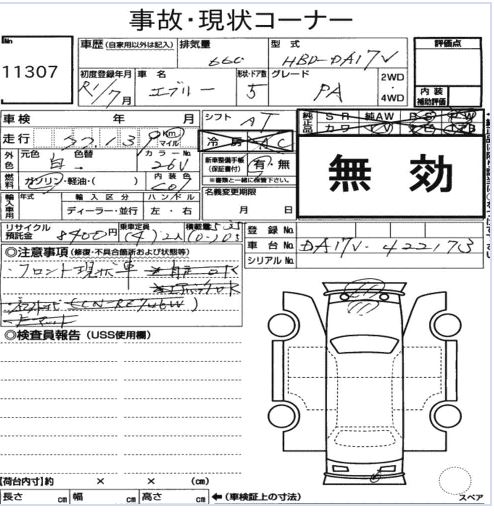 事故・現状コーナー
No 11307
車歴 (自家用以外は記入) 排気量 660 型式 HBD-DA17V 評価点
初度登録年月 R1/7月 車名 エブリー 形状・ドア数 5 グレード PA 2WD・4WD 内装補助評価
車検 年 月 シフト AT 純正品 SR 純AW PS PW
走行 Km マイル 冷房 AC カワ
外色 元色 白 色替 カラーNo 26V 新車整備手帳(保証書付) 有・無 無効
燃料 ガソリン・軽油・( ) 内装色 ※書類と一緒に掲載してください。
輸入車用 年式 輸入区分 ハンドル 名義変更期限
ディーラー・並行 左・右 月 日
リサイクル預託金 8400円 乗車定員 (4)2人 積載量 登録No.
車台No. DA17V-422173
◎注意事項 (修復・不具合箇所および状態等) シリアルNo.
・フロント現状車
◎検査員報告 (USS使用欄)
【荷台内寸】約 × × (cm)
長さ cm 幅 cm 高さ cm ←(車検証上の寸法) スペア